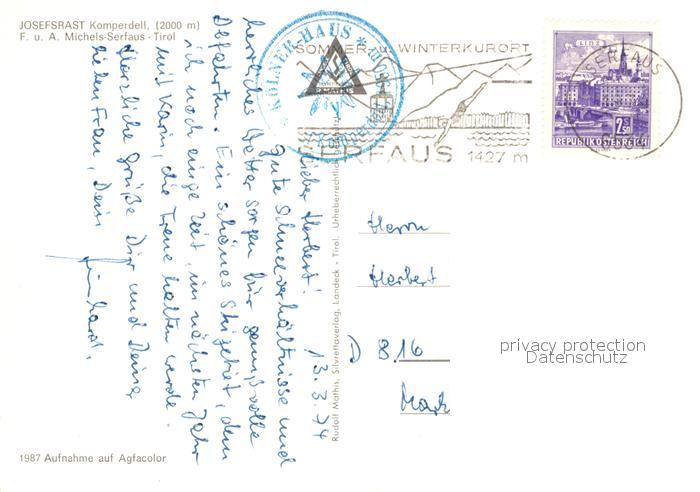 JOSEFSRAST Komperdell, (2000 m)
F. u. A. Michels-Serfaus - Tirol
KÖLNER-HAUS
SOMMER- u. WINTERKURORT
SERFAUS 1427 m
SERFAUS
LINZ
2.50
REPUBLIK ÖSTERREICH
13.3.74
Lieber Herbert!
gute Schneeverhältnisse und
herrliches Wetter sorgen für genußvolle
Abfahrten. Ein schönes Skigebiet, dem
ich noch einige Zeit, im nächsten Jahr
mit Karin, die Treue halten werde.
Herzliche Grüße Dir und Deiner
lieben Frau, Dein
Rudolf Mathis, Silvrettaverlag, Landeck - Tirol. Urheberrechtlich
Herrn
Herbert
D 816
privacy protection
Datenschutz
1987 Aufnahme auf Agfacolor